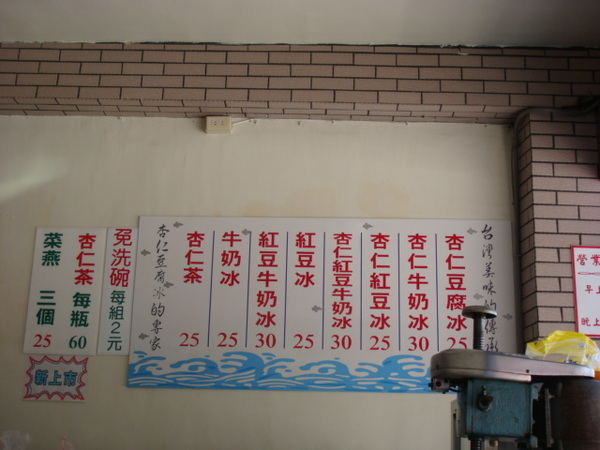 台灣美味的傳承
杏仁豆腐冰 25
杏仁牛奶冰 30
杏仁紅豆冰 30
杏仁紅豆牛奶冰 30
紅豆冰 25
紅豆牛奶冰 30
牛奶冰 25
杏仁茶 25
杏仁豆腐冰的專家
免洗碗 每組2元
杏仁茶 每瓶 60
菜燕 三個 25
新上市
營業
早上
晚上